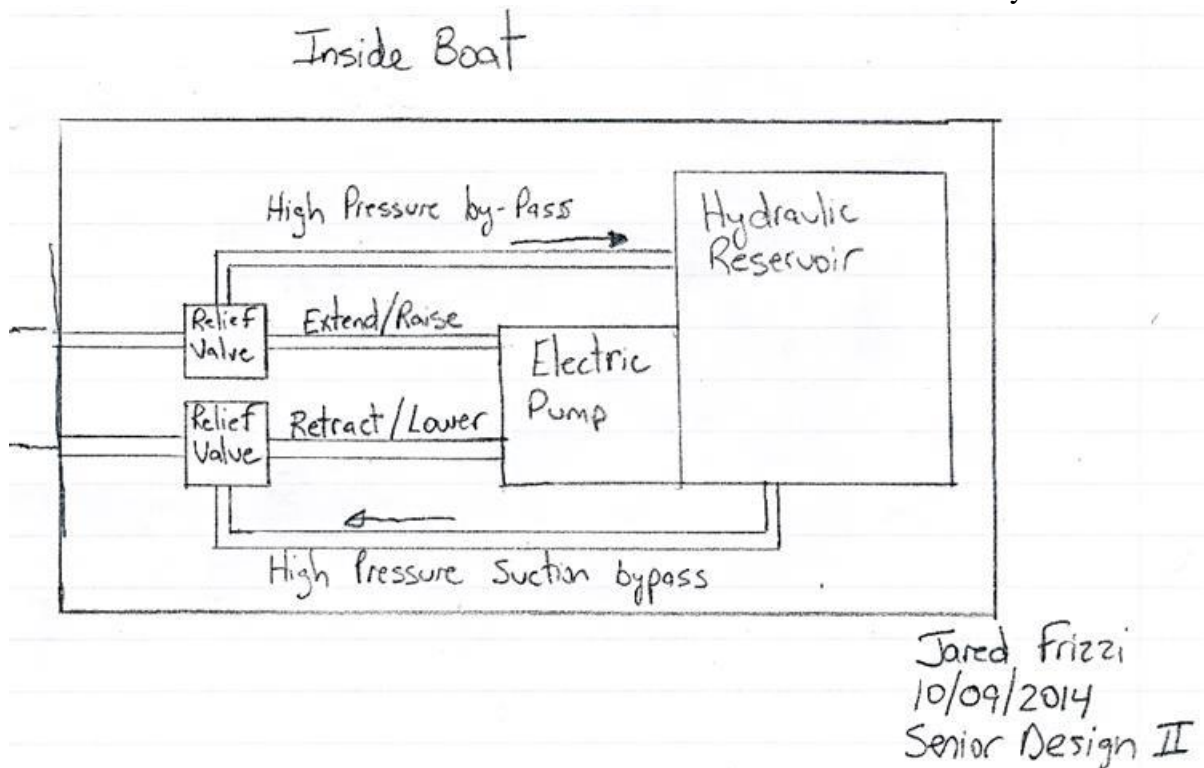 Inside Boat
High Pressure by-Pass
Hydraulic
Reservoir
Relief
Valve
Extend/Raise
Electric
Pump
Relief
Valve
Retract/Lower
High Pressure Suction bypass
Jared Frizzi
10/09/2014
Senior Design II